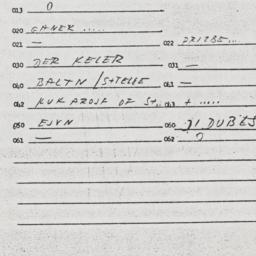 013 0
020 GANER .....
021 — 022 PRIBE...
030 DER KELER 031 —
040 BALTN / STELLE 041 —
042 KUK AROSF OF St.. 043 + .....
050 EJVN 060 JI DUBES
061 — 062 0